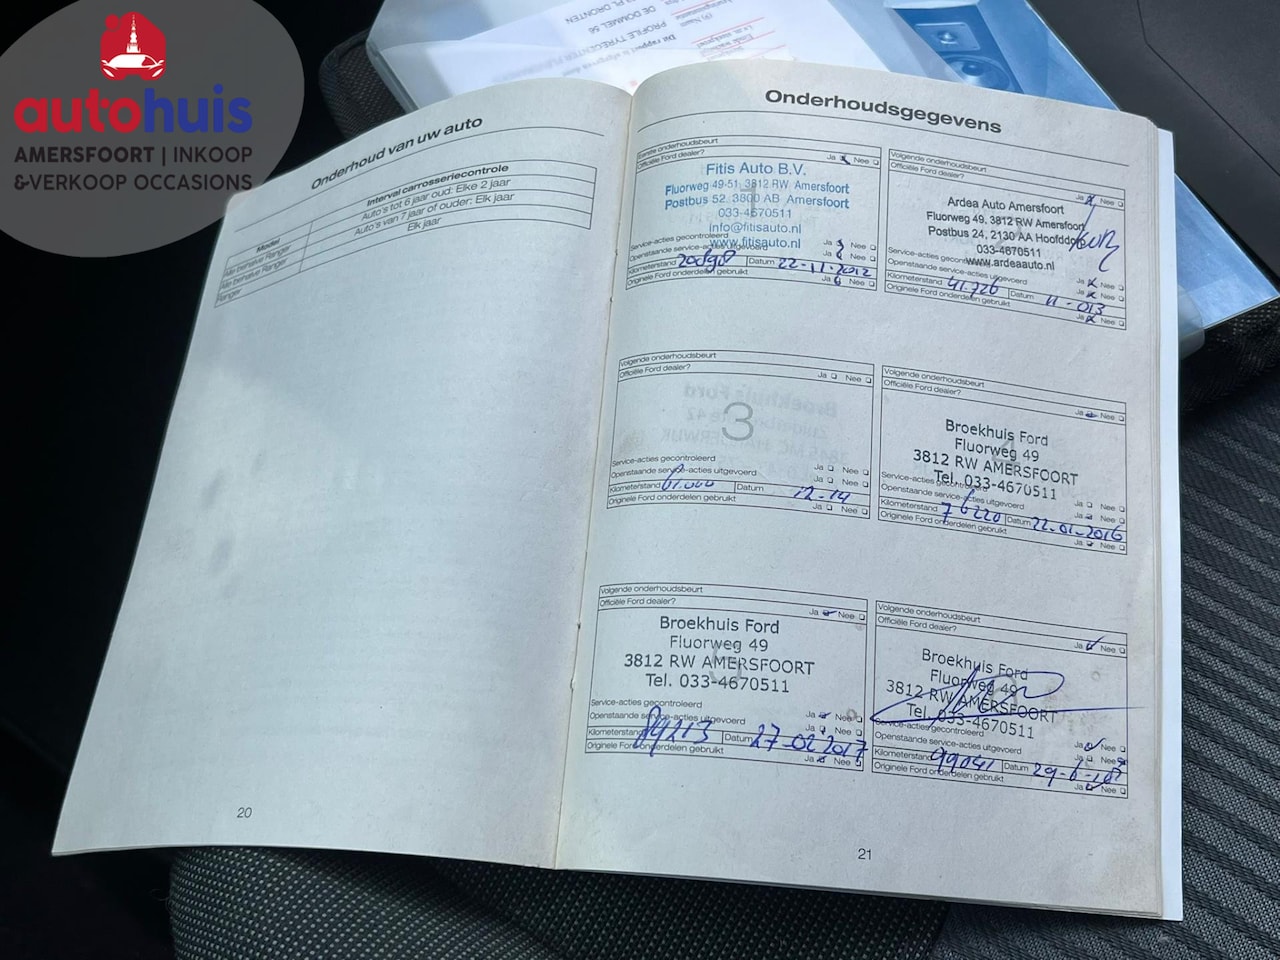 autohuis
AMERSFOORT | INKOOP
&VERKOOP OCCASIONS
Onderhoud van uw auto
Model
Interval carrosseriecontrole
Alle behalve Ranger
Auto's tot 6 jaar oud: Elke 2 jaar
Alle behalve Ranger
Auto's van 7 jaar of ouder: Elk jaar
Ranger
Elk jaar
20
PROFILE TYRECENTER
DE DOMMEL 56
DRONTEN
Onderhoudsgegevens
Eerste onderhoudsbeurt
Officiële Ford dealer? Ja Nee
Fitis Auto B.V.
Fluorweg 49-51, 3812 RW Amersfoort
Postbus 52, 3800 AB Amersfoort
033-4670511
info@fitisauto.nl
www.fitisauto.nl
Service-acties gecontroleerd Ja Nee
Openstaande service-acties uitgevoerd Ja Nee
Kilometerstand Datum 22-11-2012
Originele Ford onderdelen gebruikt Ja Nee
Volgende onderhoudsbeurt
Officiële Ford dealer? Ja Nee
Ardea Auto Amersfoort
Fluorweg 49, 3812 RW Amersfoort
Postbus 24, 2130 AA Hoofddorp
033-4670511
www.ardeaauto.nl
Service-acties gecontroleerd Ja Nee
Openstaande service-acties uitgevoerd Ja Nee
Kilometerstand 41.726 Datum 11-013
Originele Ford onderdelen gebruikt Ja Nee
Volgende onderhoudsbeurt
Officiële Ford dealer? Ja Nee
3
Service-acties gecontroleerd Ja Nee
Openstaande service-acties uitgevoerd Ja Nee
Kilometerstand 61.000 Datum 12-14
Originele Ford onderdelen gebruikt Ja Nee
Volgende onderhoudsbeurt
Officiële Ford dealer? Ja Nee
Broekhuis Ford
Fluorweg 49
3812 RW AMERSFOORT
Tel. 033-4670511
Service-acties gecontroleerd Ja Nee
Openstaande service-acties uitgevoerd Ja Nee
Kilometerstand 76220 Datum 22-01-2016
Originele Ford onderdelen gebruikt Ja Nee
Volgende onderhoudsbeurt
Officiële Ford dealer? Ja Nee
Broekhuis Ford
Fluorweg 49
3812 RW AMERSFOORT
Tel. 033-4670511
Service-acties gecontroleerd Ja Nee
Openstaande service-acties uitgevoerd Ja Nee
Kilometerstand 89213 Datum 27-02-2017
Originele Ford onderdelen gebruikt Ja Nee
Volgende onderhoudsbeurt
Officiële Ford dealer? Ja Nee
Broekhuis Ford
Fluorweg 49
3812 RW AMERSFOORT
Tel. 033-4670511
Service-acties gecontroleerd Ja Nee
Openstaande service-acties uitgevoerd Ja Nee
Kilometerstand 99041 Datum 29-6-18
Originele Ford onderdelen gebruikt Ja Nee
21